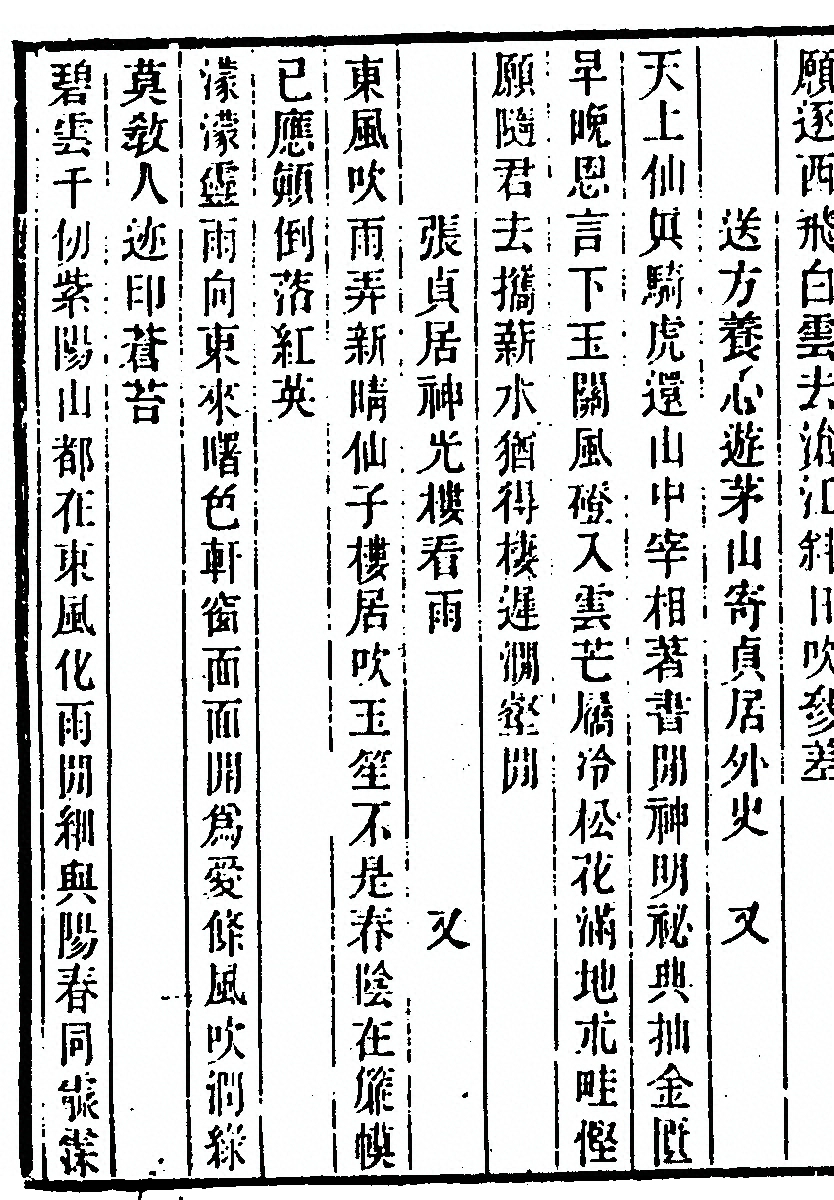 願逐西飛白雲去滄江斜日吹參差
送方養心遊茅山寄貞居外史　又
天上仙眞騎虎還山中宰相著書閒神明祕典抽金匱
早晚恩言下玉關風磴入雲芒屩冷松花滿地朮畦慳
願隨君去攜薪水猶得棲遲澗壑閒
張貞居神光樓看雨　又
東風吹雨弄新晴仙子樓居吹玉笙不是春陰在簾幙
已應顛倒落紅英
濛濛靈雨向東來曙色軒窗面面開爲愛條風吹澗綠
莫敎人迹印蒼苔
碧雲千仞紫陽山都在東風化雨閒細與陽春同